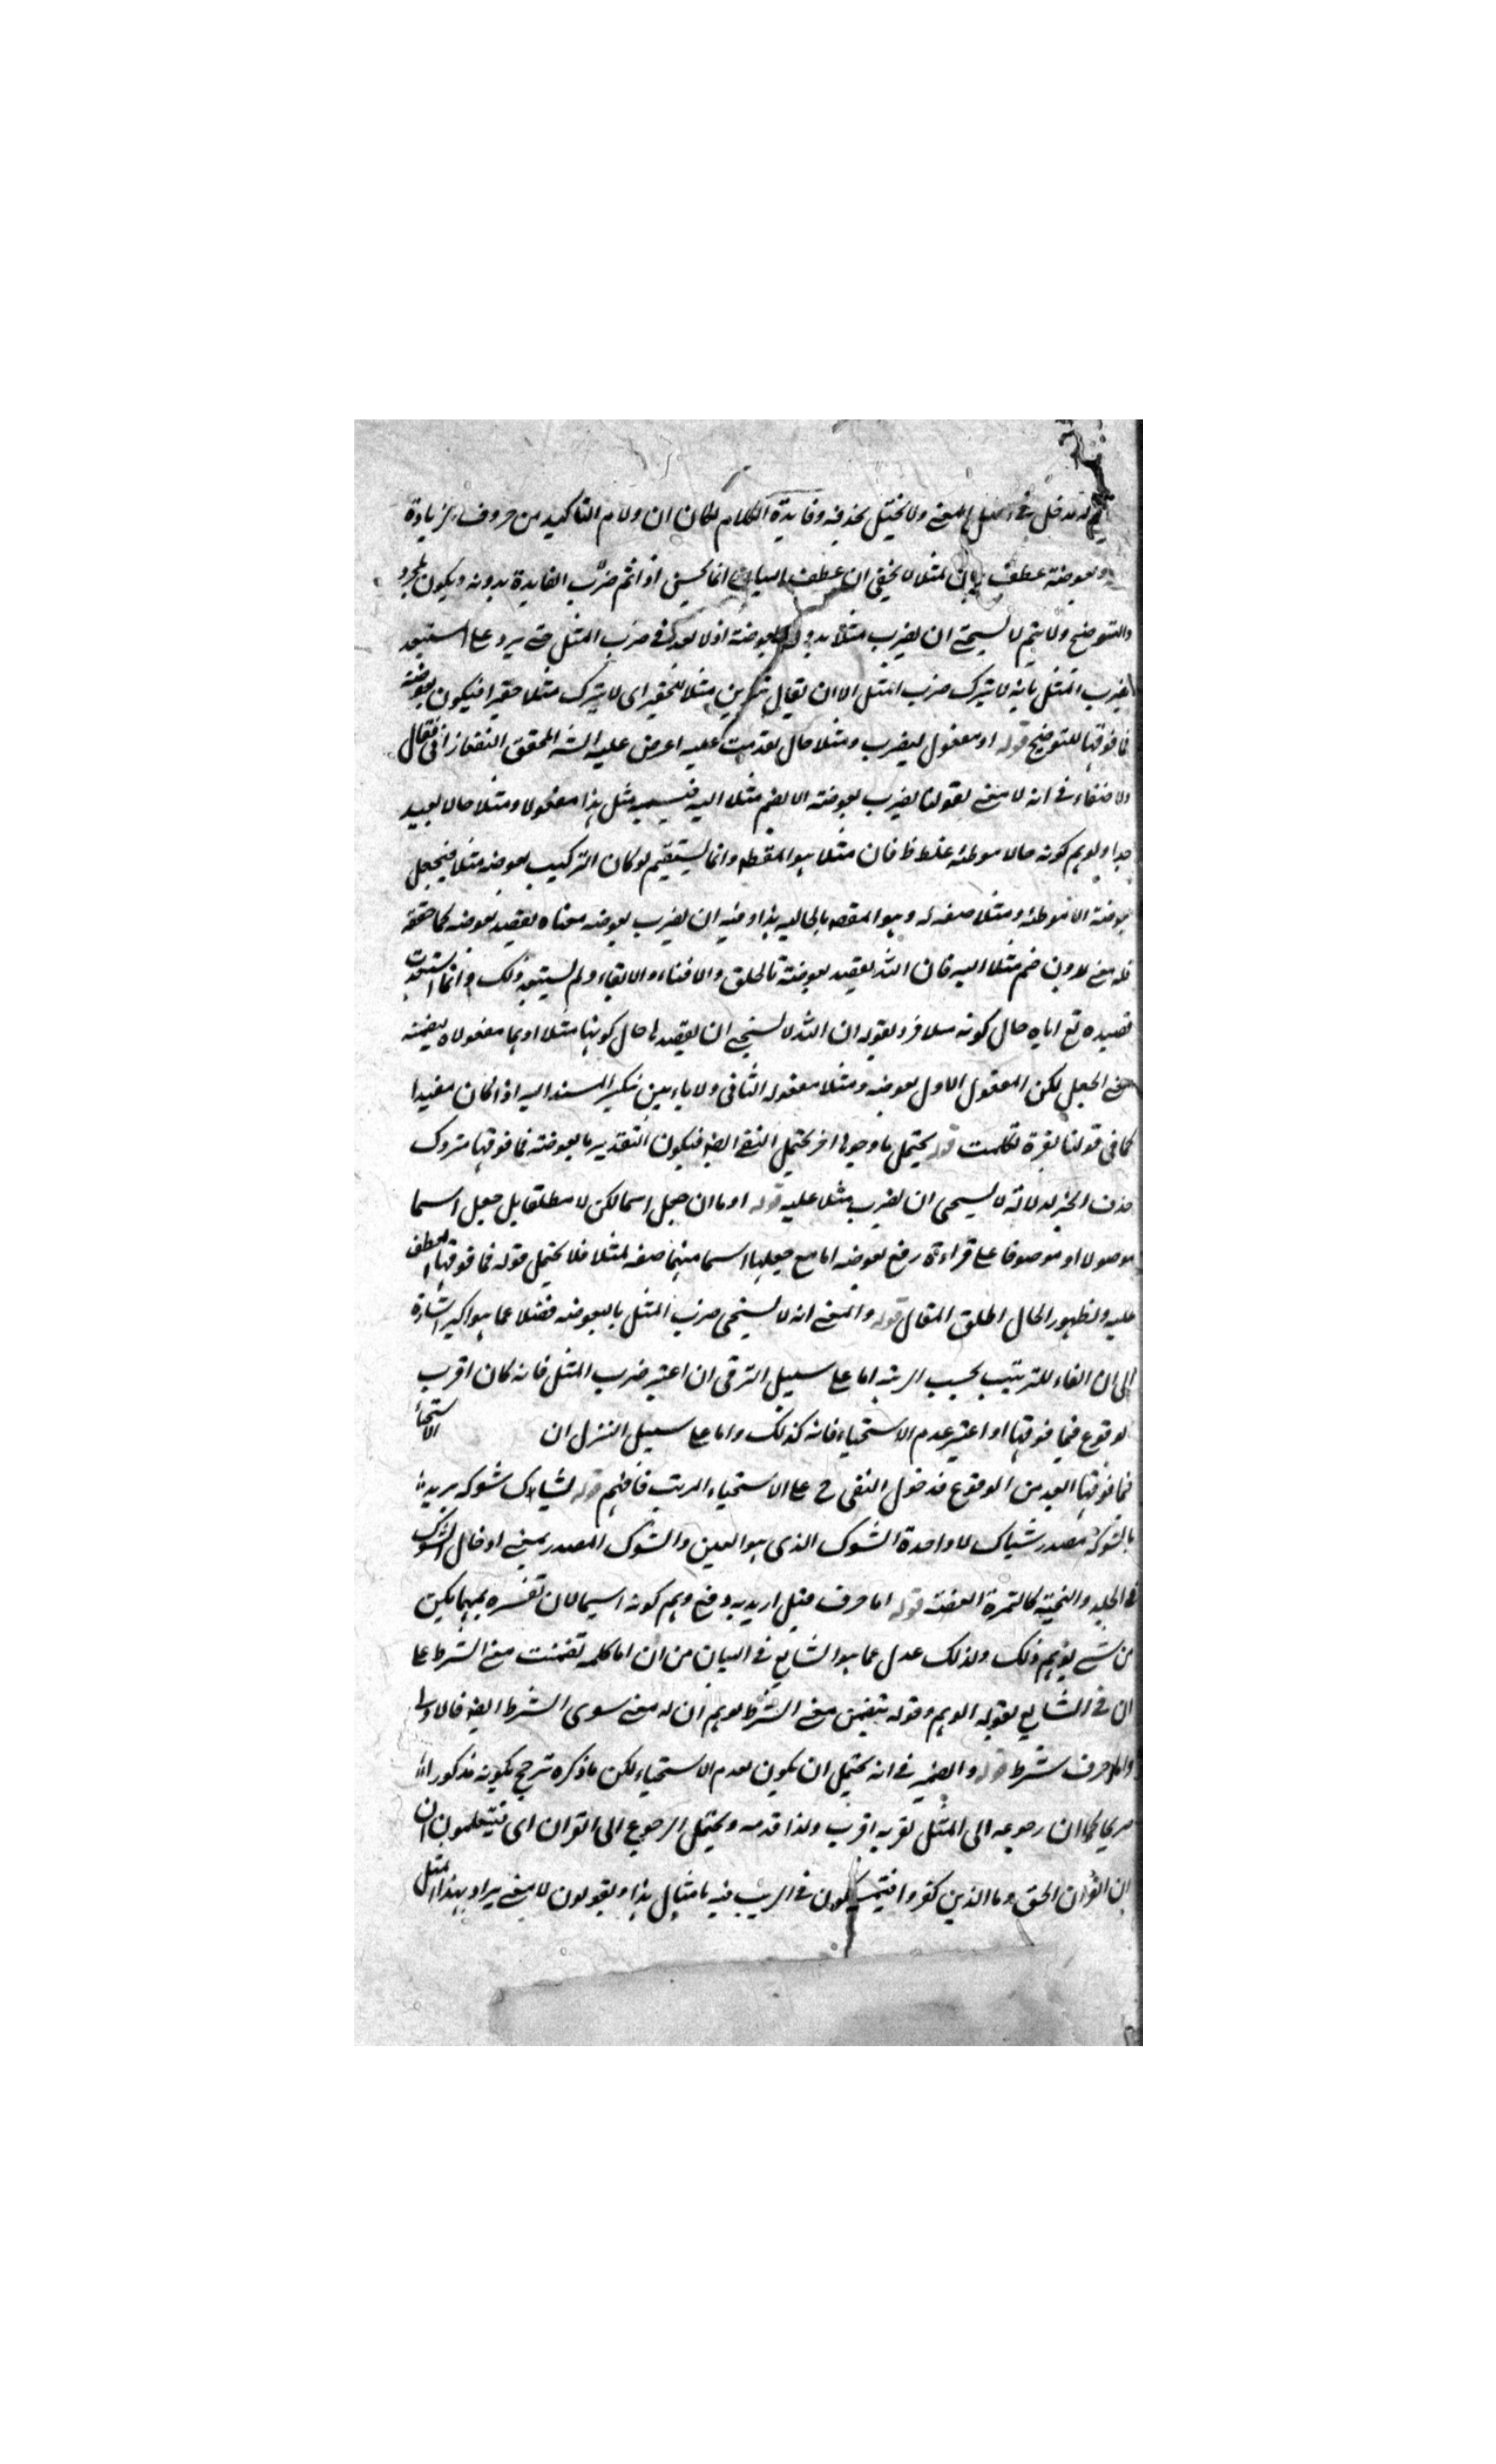 له مدخل في اصل المعنى ولا يختل بحذفه وفايدة الكلام لكان ان ولام التاكيد من حروف الزيادة
وبعوضة عطف بيان لمثلا لا يخفى ان عطف البيان انما يحسن اذا تم ضرب الفايدة بدونه ويكون لمجرد
والتوضيح ولا يتم لا يستحيى ان يضرب مثلا بدون بعوضة اذ لا بعد في ضرب المثل حتى يرد على استبعد
لضرب المثل بانه لا يترك ضرب المثل الا ان يقال تنوين مثلا للتحقير اى لا يترك مثلا حقيرا فيكون بعوضة
فما فوقها للتوضيح قوله او مفعول ليضرب ومثلا حال تقدمت عليه اعرض عليه الشه المحقق التفتازانى فقال
ولا خفاء في انه لا معنى لقولنا يضرب بعوضة الا بضم مثلا اليه فتسميه مثل هذا مفعولا ومثلا حالا بعيد
جدا ولوهم كونه حالا موطئة غلط ظ فان مثلا هو المقصد وانما يستقيم لو كان التركيب بعوضة مثلا فيجعل
بعوضة الا موطئة ومثلا صفة له وهو المقصد بالحاليه هذا وفيه ان يضرب بعوضة معناه يقصد بعوضة كما حققه
فله معنى بدون ضم مثلا اليه فان الله يقصد بعوضة بالخلق والافناء والابقاء ولم يستبعد ذلك وانما استبعدت
قصده تع اياه حال كونه مثلا فرد بقوله ان الله لا يستحيى ان يقصدها حال كونها مثلا او هما مفعولاه لتضمنه
معنى الجعل لكن المفعول الاول بعوضة ومثلا مفعوله الثانى ولا باس بتنكير المسند اليه اذا كان مفيدا
كما فى قولنا بقرة تكلمت قوله يحتمل ما وجوها اخر يحتمل النفى ايضا فيكون التقدير ما بعوضة فما فوقها متروك
حذف الخبر لدلالة لا يستحى ان يضرب مثلا عليه قوله او ما ان جعل اسما لكن لا مطلقا بل جعل اسما
موصولا او موصوفا على قراءة رفع بعوضة اما مع جعلها اسما مبهما صفة لمثلا فلا يحتمل قوله فما فوقها العطف
عليه ولظهور الحال اطلق المقال قوله والمعنى انه لا يستحى ضرب المثل بالبعوضة فضلا عما هو اكبر اشارة
الى ان الفاء للترتيب بحسب الرتبة اما على سبيل الترقى ان اعتبر ضرب المثل فانه كان اقرب
لوقوع فيما فوقها او اعتبر عدم الاستحياء فانه كذلك واما على سبيل التنزل ان الاستحيا
فما فوقها ابعد من الوقوع فدخول النفى ح على الاستحياء المرتب فافهم قوله يشاك شوكة يريد
بالشوكة مصدر شاك لا واحدة الشوك الذى هو العين والشوك المصدر بمعنى ادخال الشوك
في الجلد والنخبة كالتمرة العضة قوله اما حرف قيل اريد به دفع وهم كونه اسما لان تفسيره بمهما يكن
من شئ يوهم ذلك ولذلك عدل عما هو الشايع في البيان من ان اما كلمة تضمنت معنى الشرط على
ان في الشايع تقوية الوهم وقوله يتضمن معنى الشرط يوهم ان له معنى سوى الشرط ايضا فالاولى
واما حرف شرط قوله والضمير في انه يحتمل ان يكون لعدم الاستحياء لكن ما ذكره ترجح بكونه مذكورا
صريحا كما ان رجوعه الى المثل لقربه اقرب ولذا قدمه ويحتمل الرجوع الى القران اى فيعلمون ان
ان القران الحق وما الذين كفروا فيتمسكون في الريب فيه بامثال هذا ويقولون لا معنى يراد بهذا المثل